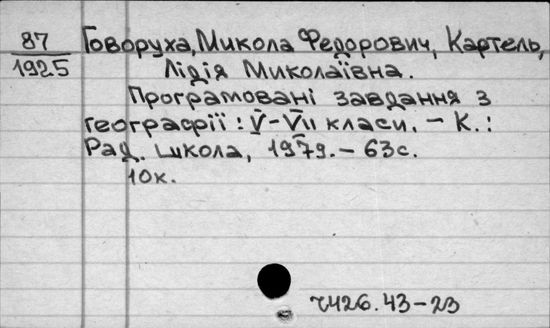 87
1925
Говоруха, Микола Федорович, Картель,
Лідія Миколаївна.
Програмовані завдання з
географії: V-VII класи. - К.:
Рад. школа, 1979. - 63с.
10к.
Ч426.43-23